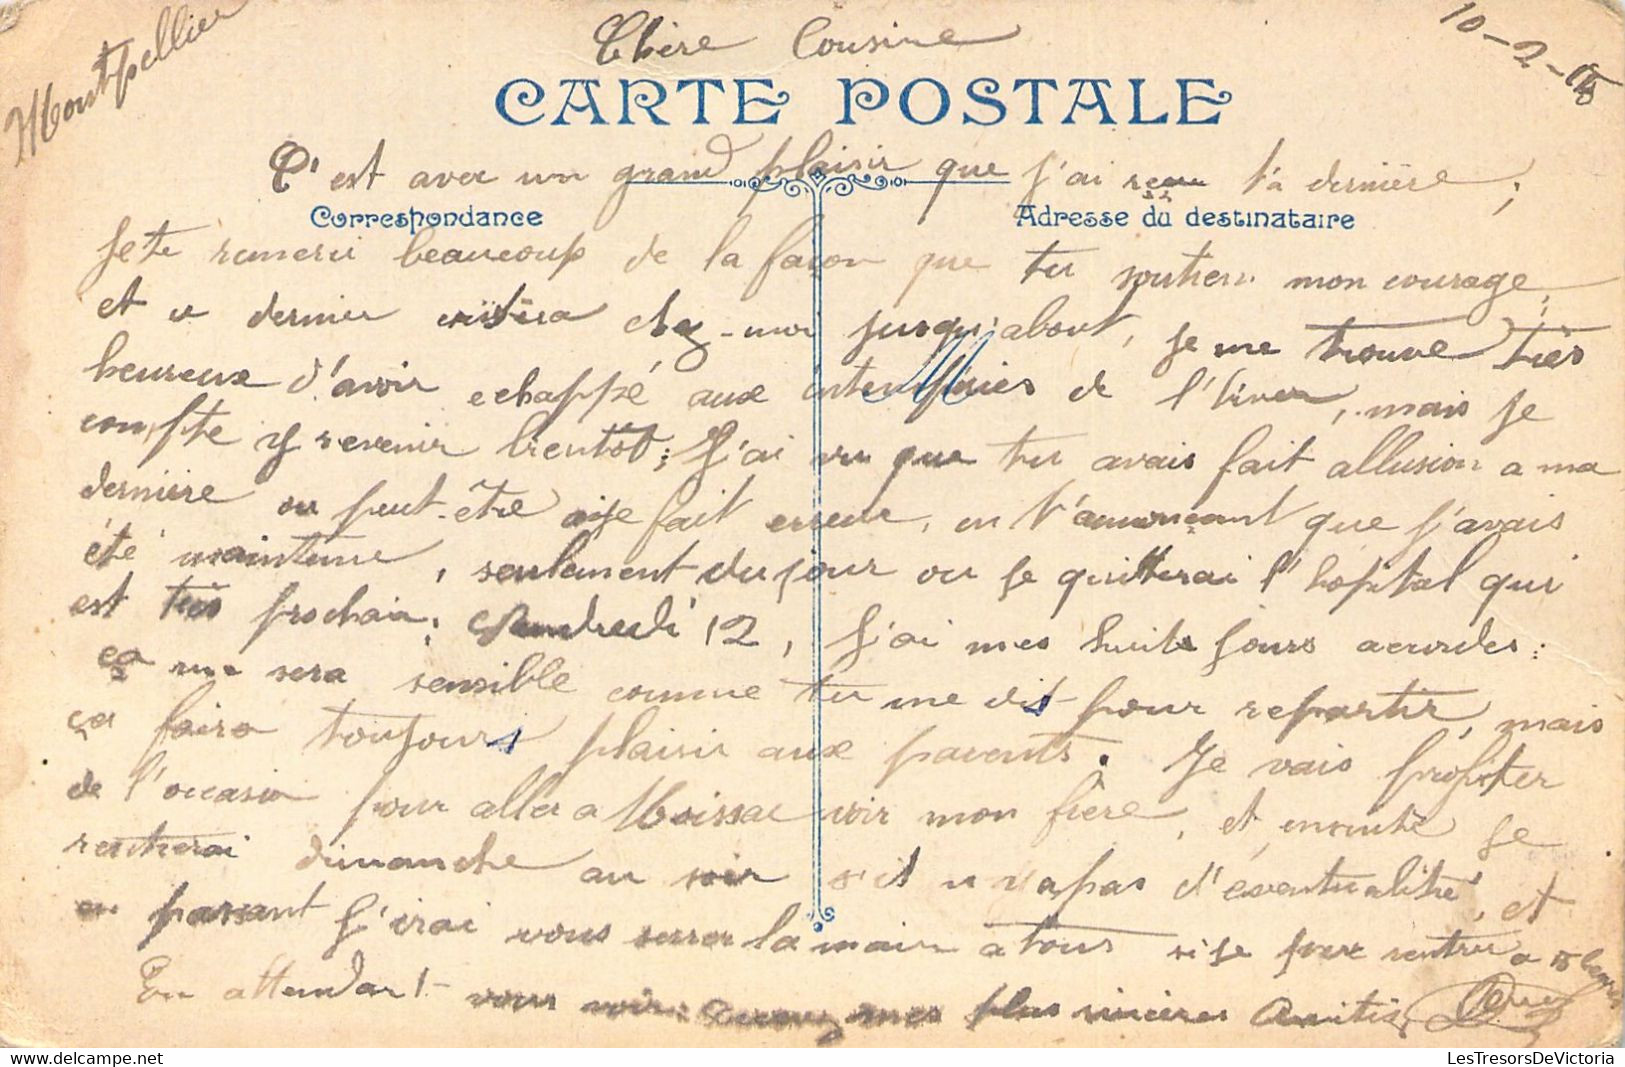 Montpellier
10-2-
Chère Cousine
CARTE POSTALE
C'est avec un grand plaisir que j'ai reçu ta dernière ;
Correspondance
Adresse du destinataire
Je te remerci beaucoup de la façon que tu soutien mon courage,
et ce dernier existera chez-moi jusqu'about, je me trouve très
heureux d'avoir echappé aux intempéries de l'hiver, mais je
compte y revenir bientôt; J'ai vu que tu avais fait allusion a ma
dernière ou peut-être ai je fait erreur, en t'annonçant que j'avais
été maintenu, seulement du jour ou je quitterai l'hôpital qui
est très prochain, Vendredi 12, j'ai mes huits jours accordés:
ça me sera sensible comme tu me dis pour repartir, mais
ça faira toujours plaisir aux parents. Je vais profiter
de l'occasion pour aller a Moissac voir mon frère, et ensuite je
rentrerai dimanche au soir s'il n'y a pas d'éventualité, et
en passant j'irai vous serrer la main a tous si je peux rentrer a 5 heures
En attendant vous voir recevez mes plus sincères Amitiés
LesTresorsDeVictoria